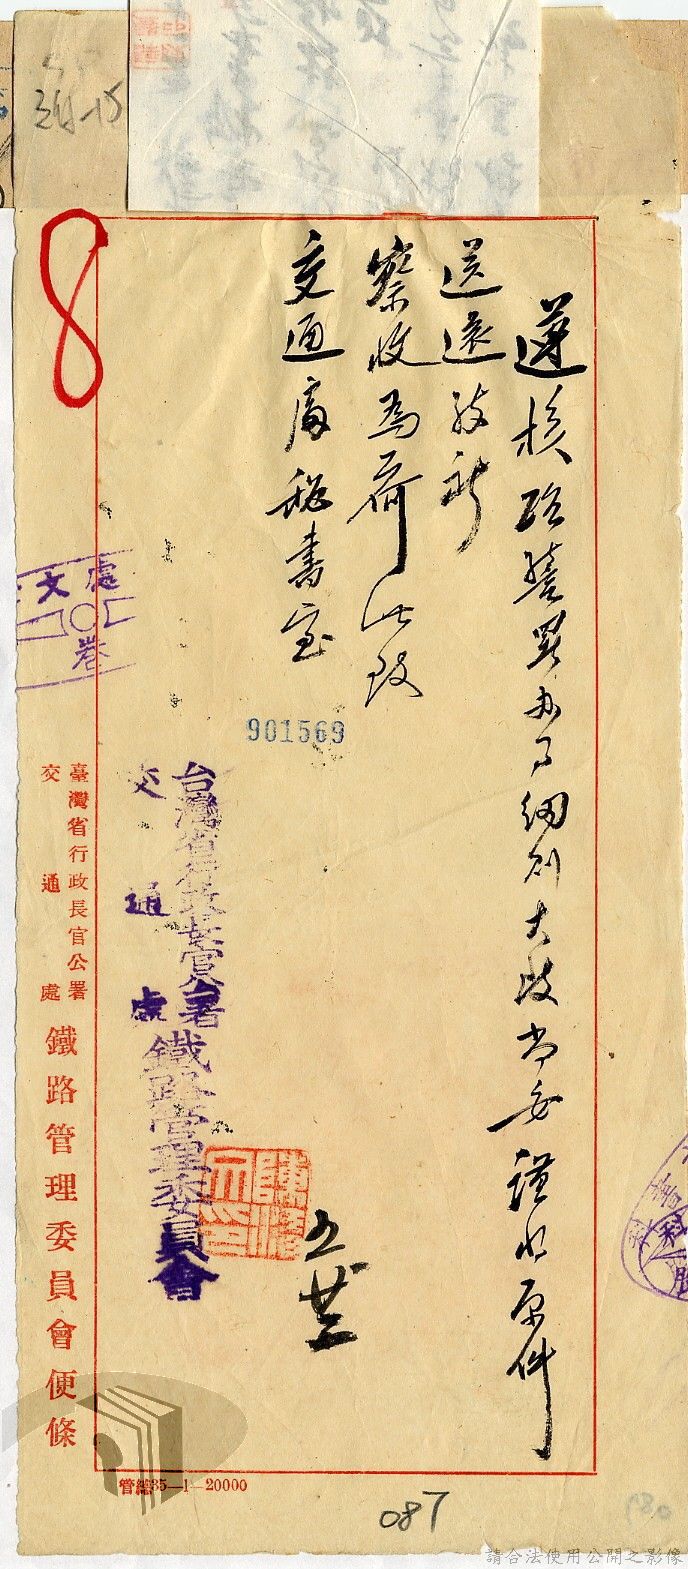 遵核臨營業办事細則大致尚妥謹將原件
送還敬祈
察收為荷此致
交通處秘書室
五廿三
901569
台灣省行政長官公署
交通處
鐵路管理委員會
臺灣省行政長官公署
交通處
鐵路管理委員會便條
處文
卷
8
管總35—1—20000
087
請合法使用公開之影像